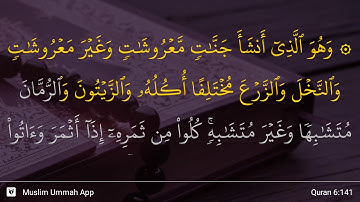 ۞ وَهُوَ ٱلَّذِىٓ أَنشَأَ جَنَّٰتٍ مَّعْرُوشَٰتٍ وَغَيْرَ مَعْرُوشَٰتٍ
وَٱلنَّخْلَ وَٱلزَّرْعَ مُخْتَلِفًا أُكُلُهُۥ وَٱلزَّيْتُونَ وَٱلرُّمَّانَ
مُتَشَٰبِهًا وَغَيْرَ مُتَشَٰبِهٍۚ كُلُوا۟ مِن ثَمَرِهِۦٓ إِذَآ أَثْمَرَ وَءَاتُوا۟
Muslim Ummah App
Quran 6:141